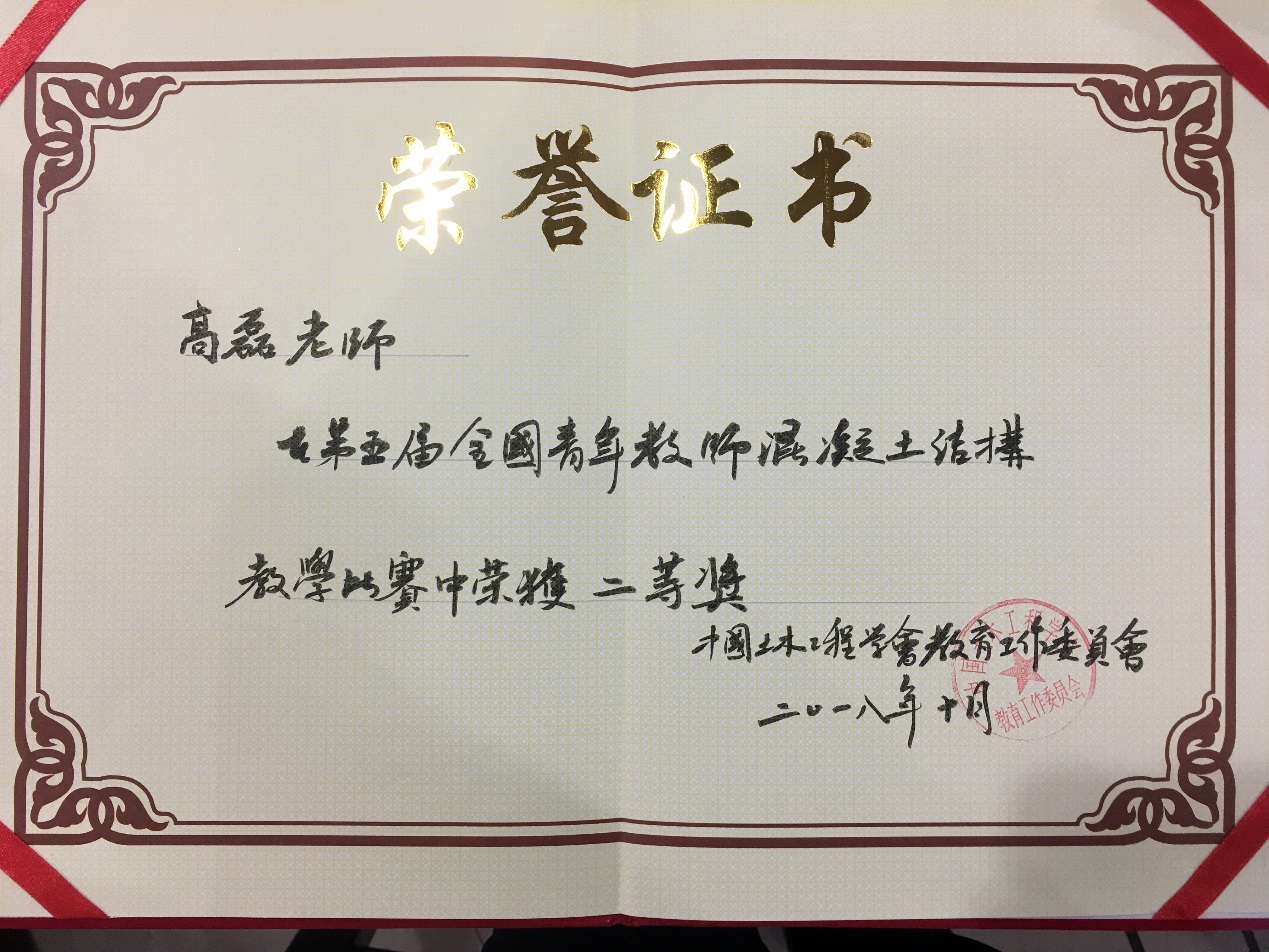 荣誉证书
高磊老師
在第五届全國青年教师混凝土结構
教學比賽中荣獲 二等奖
中國土木工程学會教育工作委員會
二〇一八年十月
中国土木工程学会
教育工作委员会